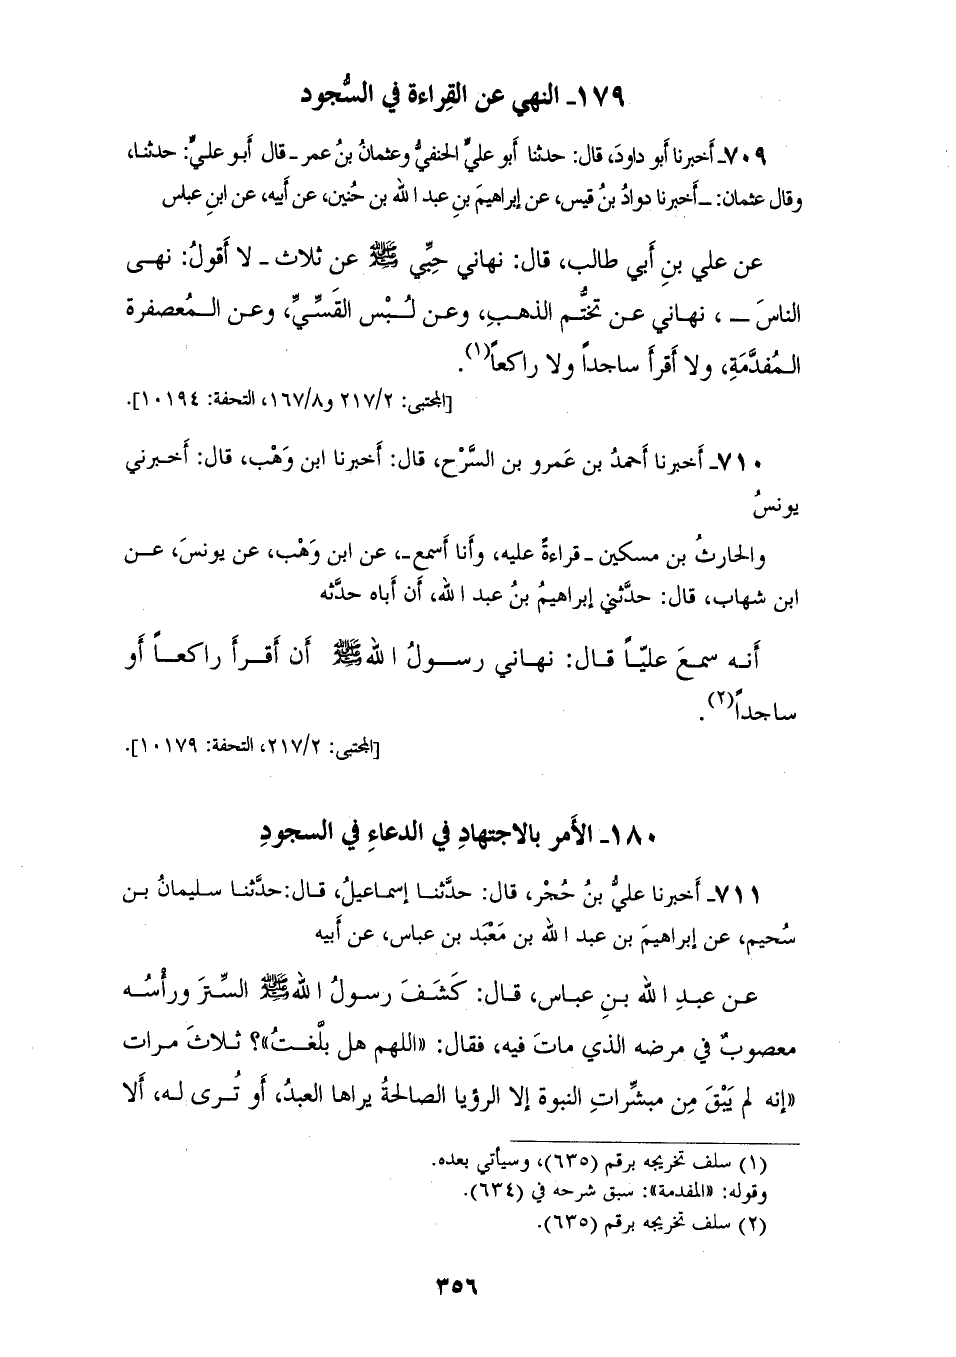 ١٧٩ـ النهي عن القِراءة في السُّجود
٧٠٩ـ أخبرنا أبو داودَ، قال: حدثنا أبو عليٍّ الحنفيُّ وعثمانُ بنُ عمر ـ قال أبو عليٍّ: حدثنا،
وقال عثمان: ـ أخبرنا دوادُ بنُ قيس، عن إبراهيمَ بنِ عبد الله بن حُنين، عن أبيه، عن ابنِ عباس
عن علي بنِ أبي طالب، قال: نهاني حِبِّي ﷺ عن ثلاث ـ لا أقولُ: نهى
الناسَ ـ ، نهاني عن تختُّم الذهبِ، وعن لُبْس القَسِّيِّ، وعن المُعصفرة
المُفدَّمَةِ، ولا أقرأ ساجداً ولا راكعاً(١).
[المجتبى: ٢١٧/٢ و١٦٧/٨، التحفة: ١٠١٩٤].
٧١٠ـ أخبرنا أحمدُ بن عَمرو بن السَّرْح، قال: أخبرنا ابن وَهْب، قال: أخبرني
يونسُ
والحارثُ بن مسكين ـ قراءةً عليه، وأنا أسمع ـ، عن ابن وَهْب، عن يونسَ، عن
ابن شهاب، قال: حدَّثني إبراهيمُ بنُ عبد الله، أن أباه حدثه
أنه سمعَ عليّاً قال: نهاني رسولُ الله ﷺ أن أقرأَ راكعاً أو
ساجداً(٢).
[المجتبى: ٢١٧/٢، التحفة: ١٠١٧٩].
١٨٠ـ الأمر بالاجتهادِ في الدعاءِ في السجودِ
٧١١ـ أخبرنا عليُّ بنُ حُجْر، قال: حدَّثنا إسماعيلُ، قال: حدَّثنا سليمانُ بن
سُحيم، عن إبراهيمَ بن عبد الله بن مَعْبَد بن عباس، عن أبيه
عن عبدِ الله بنِ عباس، قال: كَشَفَ رسولُ الله ﷺ السِّترَ ورأْسُه
معصوبٌ في مرضه الذي ماتَ فيه، فقال: «اللهم هل بلَّغتُ»؟ ثلاثَ مرات
«إنه لم يَبْقَ مِن مبشِّراتِ النبوة إلا الرؤيا الصالحةُ يراها العبدُ، أو تُرى له، ألا
(١) سلف تخريجه برقم (٦٣٥)، وسيأتي بعده.
وقوله: «المفدمة»: سبق شرحه في (٦٣٤).
(٢) سلف تخريجه برقم (٦٣٥).
٣٥٦